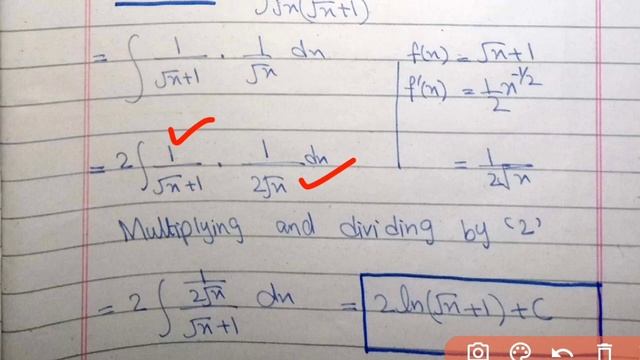 ∫ √x(√x+1)
= ∫ 1/(√x+1) · 1/√x dx
f(x) = √x+1
f'(x) = 1/2 x^(-1/2)
= 2∫ 1/(√x+1) · 1/(2√x) dx
= 1/(2√x)
Multiplying and dividing by '2'
= 2 ∫ (1/(2√x))/(√x+1) dx = 2 ln(√x+1)+C